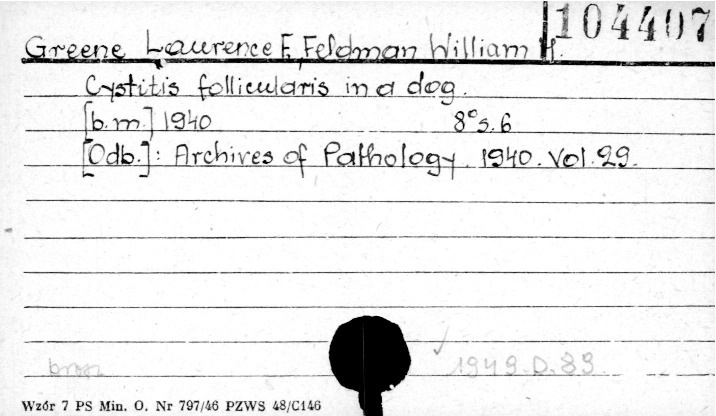 104407
Greene Laurence F., Feldman William H.
Cystitis follicularis in a dog.
[b.m.] 1940 8° s. 6
[Odb.]: Archives of Pathology. 1940. Vol. 29.
brosz 1949.D.83
Wzór 7 PS Min. O. Nr 797/46 PZWS 48/C146